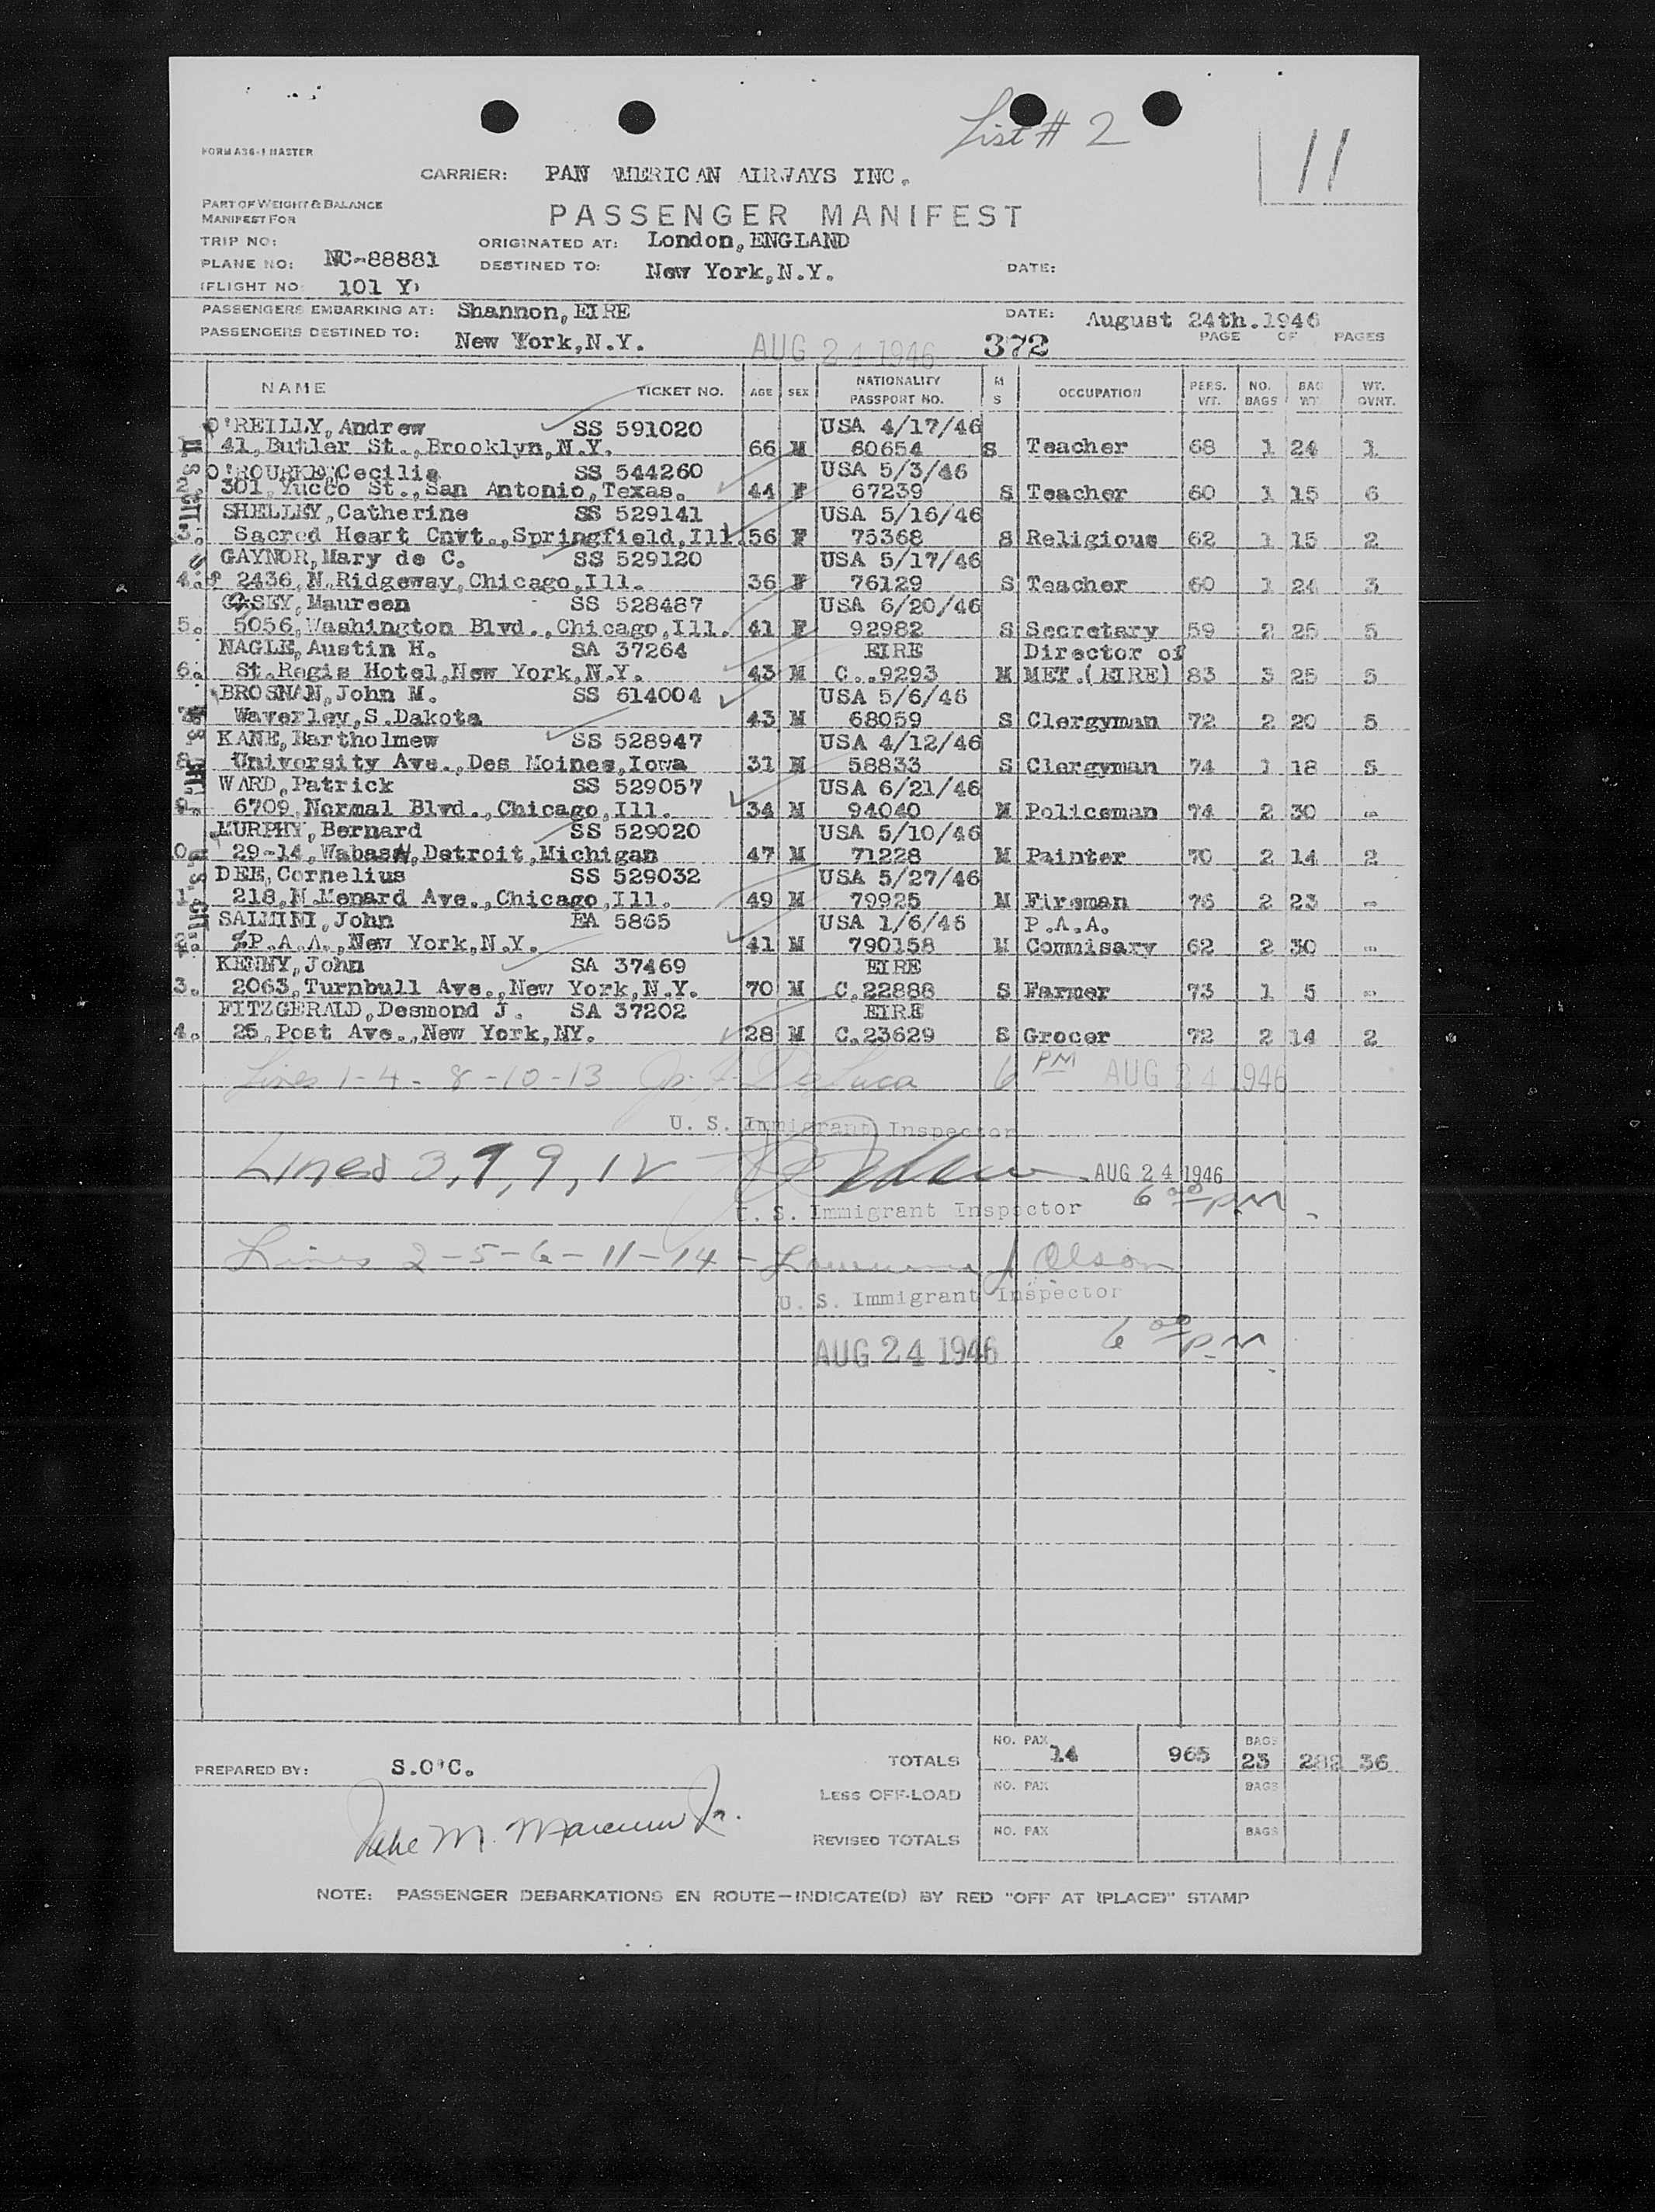 List # 2
11
FORM A36-1 MASTER
CARRIER: PAN AMERICAN AIRWAYS INC.
PART OF WEIGHT & BALANCE
MANIFEST FOR
PASSENGER MANIFEST
TRIP NO: ORIGINATED AT: London, ENGLAND
PLANE NO: NC-88881 DESTINED TO: New York, N.Y. DATE:
(FLIGHT NO: 101 Y)
PASSENGERS EMBARKING AT: Shannon, EIRE DATE: August 24th. 1946
PASSENGERS DESTINED TO: New York, N.Y. AUG 24 1946 372 PAGE OF PAGES
NAME TICKET NO. AGE SEX NATIONALITY PASSPORT NO. M S OCCUPATION PERS. WT. NO. BAGS BAG WT. WT. OVNT.
O'REILLY, Andrew SS 591020 USA 4/17/46
41, Butler St., Brooklyn, N.Y. 66 M 60654 S Teacher 68 1 24 1
O'ROURKE, Cecilia SS 544260 USA 5/3/46
2. 301, Yucco St., San Antonio, Texas. 44 F 67239 S Teacher 60 1 15 6
SHELLEY, Catherine SS 529141 USA 5/16/46
3. Sacred Heart Cnvt., Springfield, Ill. 56 F 75368 S Religious 62 1 15 2
GAYNOR, Mary de C. SS 529120 USA 5/17/46
4. 2436, N. Ridgeway, Chicago, Ill. 36 F 76129 S Teacher 60 1 24 3
CASEY, Maureen SS 528487 USA 6/20/46
5. 5056, Washington Blvd., Chicago, Ill. 41 F 92982 S Secretary 59 2 25 5
NAGLE, Austin H. SA 37264 EIRE Director of
6. St. Regis Hotel, New York, N.Y. 43 M C..9293 M MET. (EIRE) 83 3 25 5
BROSNAN, John M. SS 614004 USA 5/6/46
Waverley, S. Dakota 43 M 68059 S Clergyman 72 2 20 5
KANE, Bartholmew SS 528947 USA 4/12/46
8. University Ave., Des Moines, Iowa 31 M 58833 S Clergyman 74 1 18 5
WARD, Patrick SS 529057 USA 6/21/46
9. 6709, Normal Blvd., Chicago, Ill. 34 M 94040 M Policeman 74 2 30 -
MURPHY, Bernard SS 529020 USA 5/10/46
0. 29-14, Wabash, Detroit, Michigan 47 M 71228 M Painter 70 2 14 2
DEE, Cornelius SS 529032 USA 5/27/46
1. 218, N. Menard Ave., Chicago, Ill. 49 M 79925 M Fireman 76 2 23 -
SALMINI, John EA 5865 USA 1/6/46 P.A.A.
2. %P.A.A., New York, N.Y. 41 M 790158 M Commisary 62 2 30 -
KENNY, John SA 37469 EIRE
3. 2063, Turnbull Ave., New York, N.Y. 70 M C.22888 S Farmer 73 1 5 -
FITZGERALD, Desmond J. SA 37202 EIRE
4. 25, Post Ave., New York, NY. 28 M C.23629 S Grocer 72 2 14 2
Lines 1-4-8-10-13 DeLuca 6 PM AUG 24 1946
U. S. Immigrant Inspector
Lines 3, 7, 9, 12 AUG 24 1946
U. S. Immigrant Inspector 6 00 PM
Lines 2-5-6-11-14 - Lawrence J Olson
U. S. Immigrant Inspector
AUG 24 1946 6 00 PM
PREPARED BY: S.O'C. TOTALS NO. PAX 14 965 BAGS 23 282 36
LESS OFF-LOAD NO. PAX BAGS
REVISED TOTALS NO. PAX BAGS
NOTE: PASSENGER DEBARKATIONS EN ROUTE—INDICATE(D) BY RED "OFF AT (PLACE)" STAMP